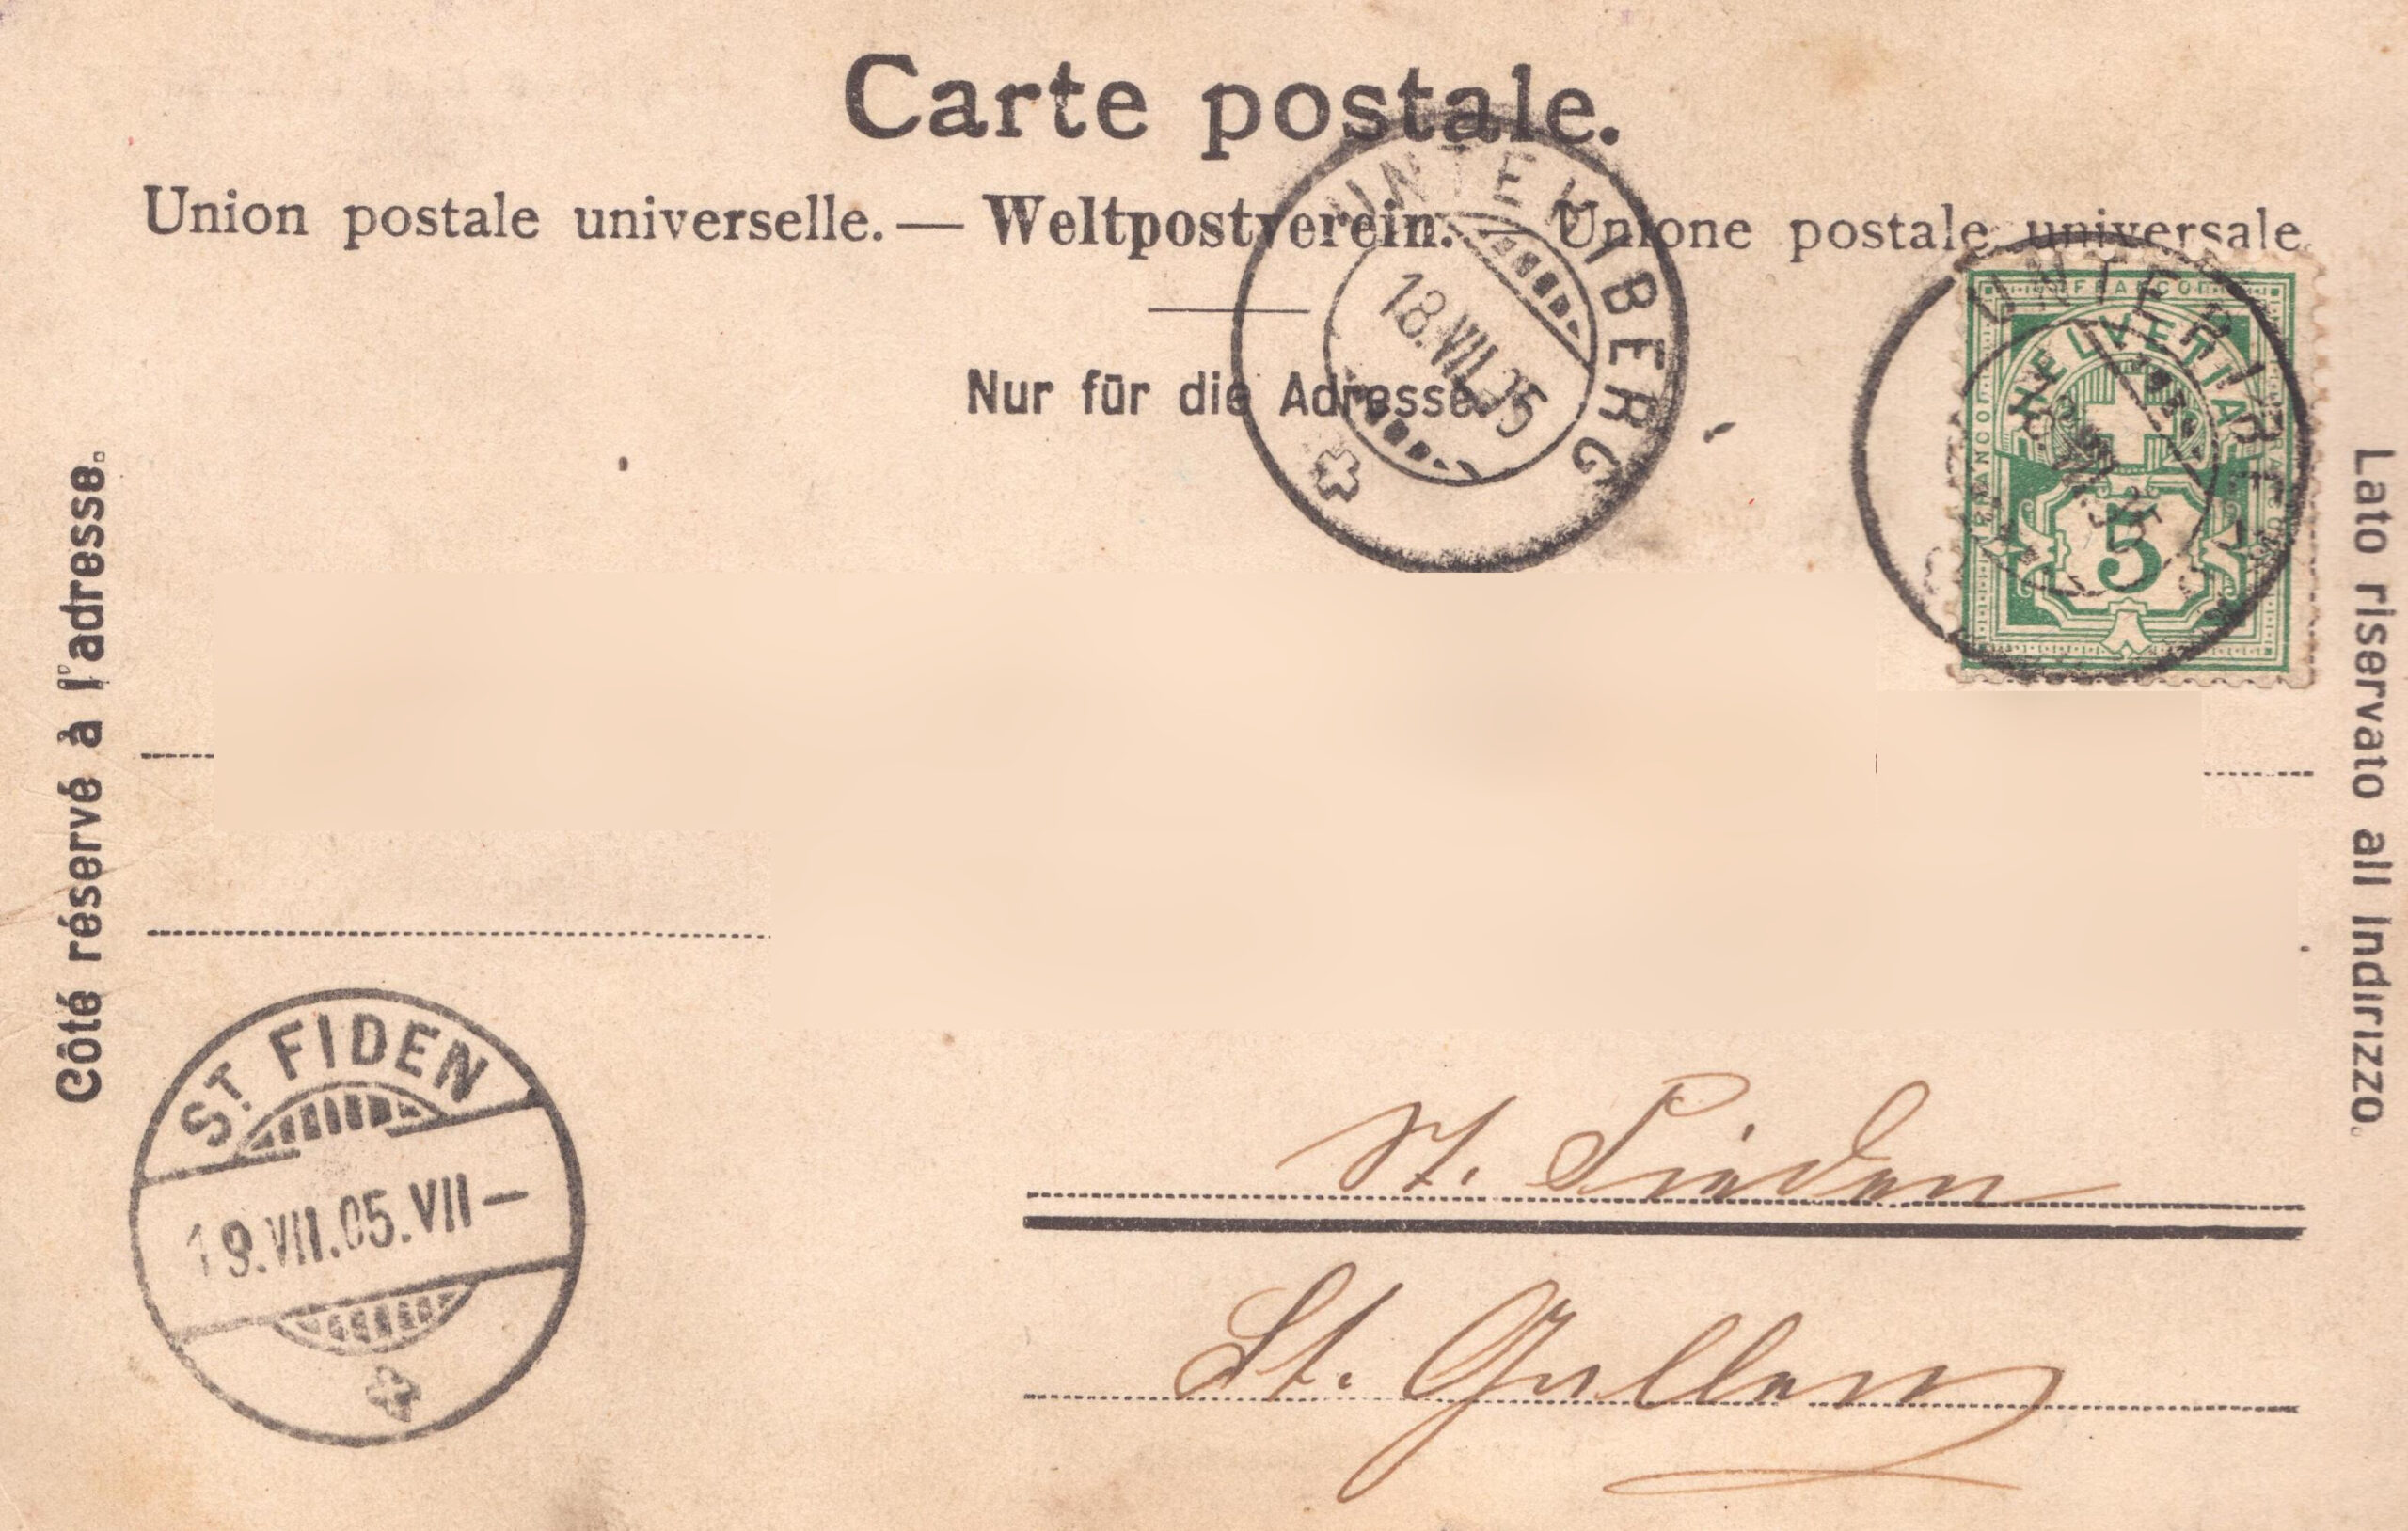 Carte postale.
Union postale universelle. — Weltpostverein. — Unione postale universale.
Nur für die Adresse.
Côté réservé à l'adresse.
Lato riservato all Indirizzo.
18.VII.05
FRANCO
HELVETIA
FRANCO
5
ST. FIDEN
19.VII.05.VII—
St. Fiden
St. Gallen